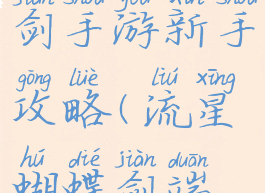 jiàn shǒu yóu xīn shǒu
剑手游新手
gōng lüè liú xīng
攻略(流星
hú dié jiàn duān
蝴蝶剑端